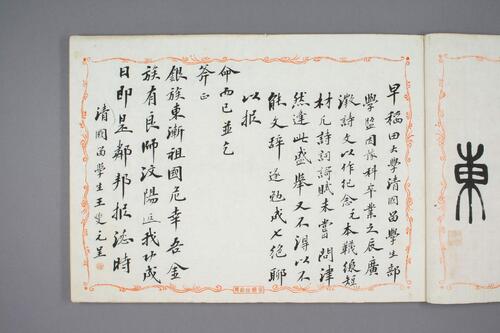 東
早稻田大學清國留學生部
學監因豫科卒業之辰廣
徵詩文以作紀念元本襪線短
材凡詩詞謌賦未嘗問津
然逢此盛舉又不得以不
能文辭遂勉成七絕聊
以報
命而已並乞
斧正
銀族東漸祖國危幸吾金
族有良師汶陽返我功成
日即是鄰邦報德時
清國留學生王元呈